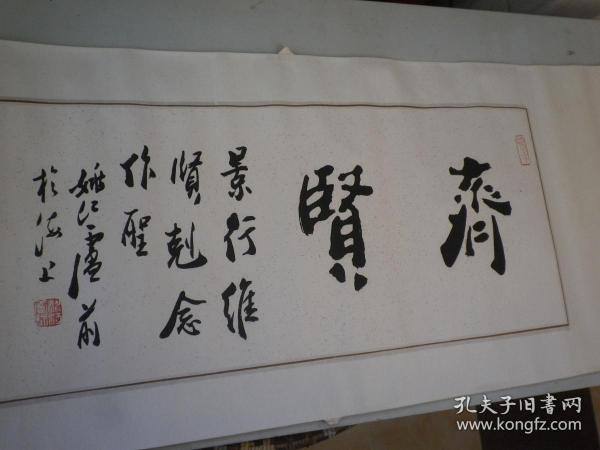 齊賢
景行維
賢剋念
作聖
姚江盧前
於海上
孔夫子旧书网
www.kongfz.com